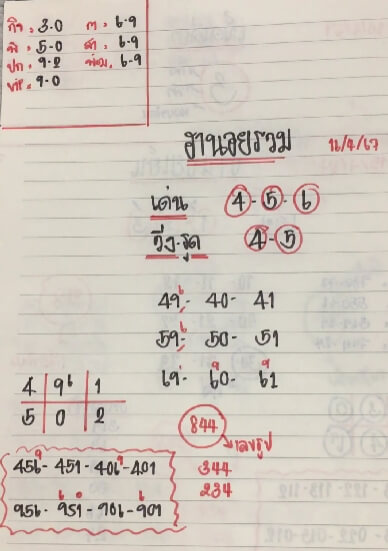 กิจ : 3-0 ต : 6-9
พิ : 5-0 ส่า : 6-9
ปก : 9-2 พัฒน : 6-9
vip : 9-0
ฮานอยรวม 11/4/67
เด่น 4-5-6
วิ่ง-รูด 4-5
49- 40- 41
59- 50- 51
69- 60- 61
4 96 1
5 0 2
844
เลขรูป
344
234
456-451-406-401
956-951-906-901